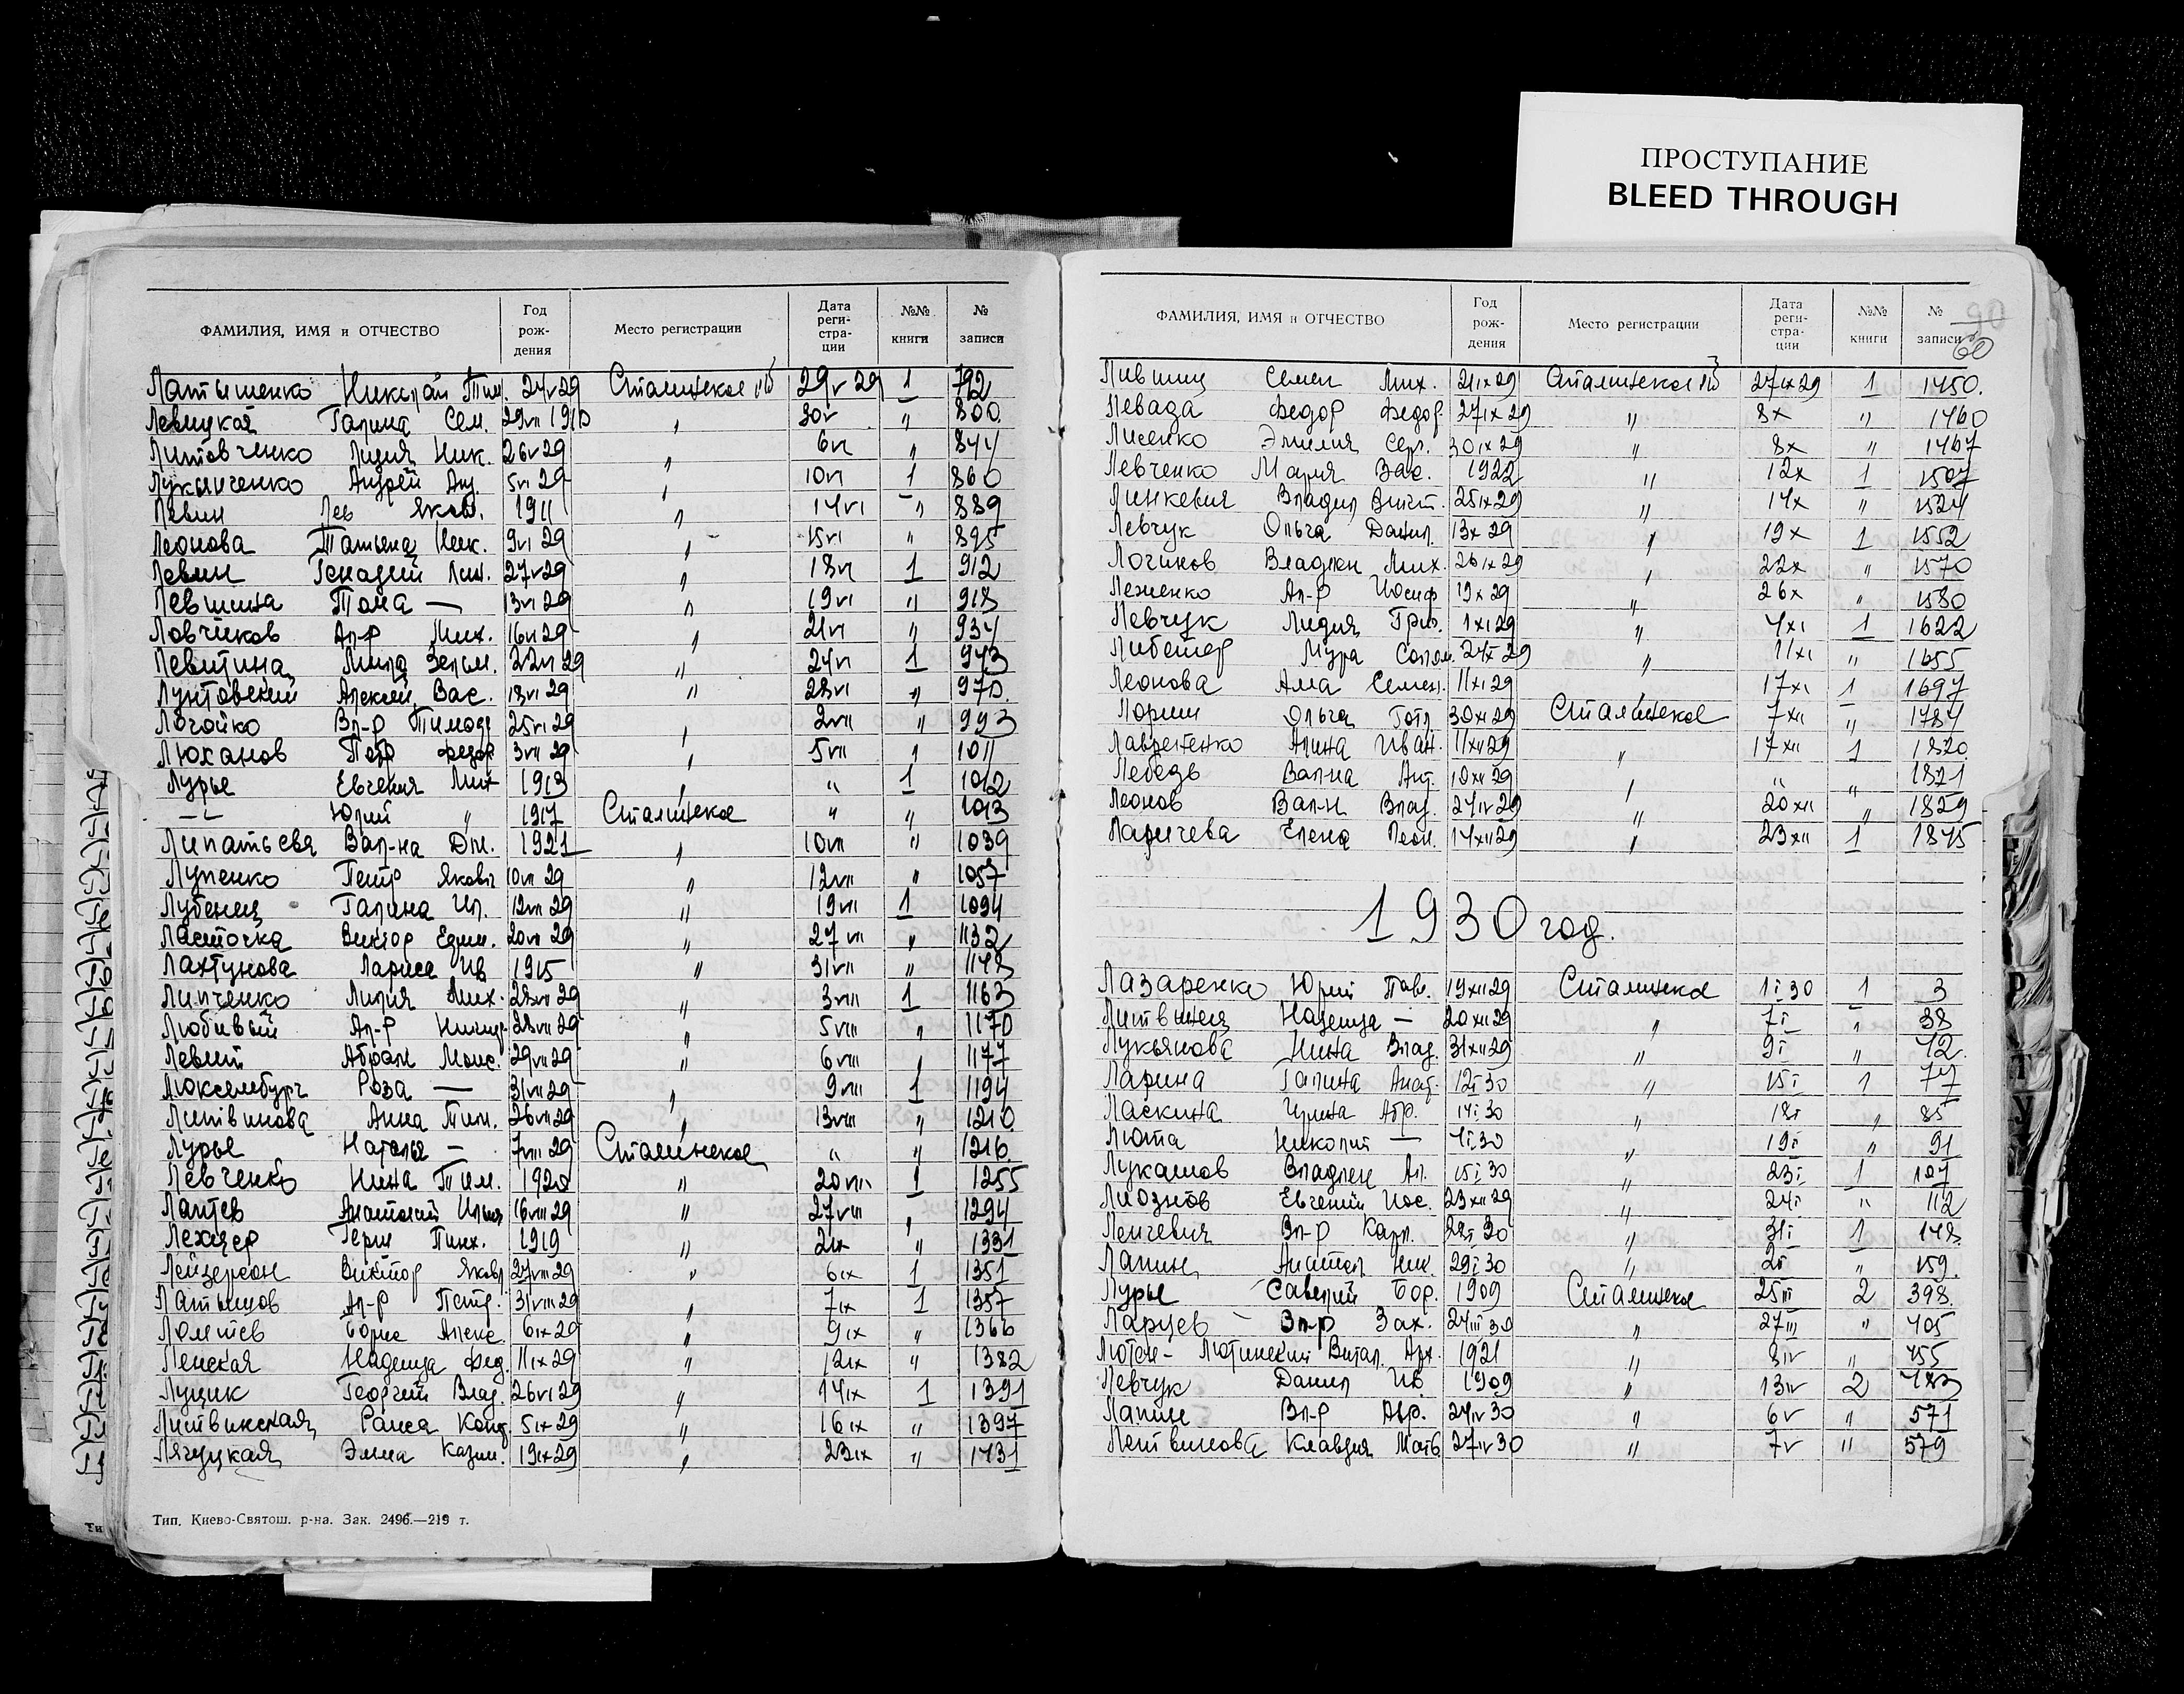 ПРОСТУПАНИЕ
BLEED THROUGH
ФАМИЛИЯ, ИМЯ и ОТЧЕСТВО Год рож- дения Место регистрации Дата реги- стра- ции №№ книги № записи
Латышенко Николай Тим. 24 v 29 Сталинское 29 v 29 1 792
Левицкая Галина Сем. 29 vii 1910 " 30 v " 800
Литовченко Лидия Ник. 26 v 29 " 6 vi " 844
Лукьянченко Андрей Анд. 5 vi 29 " 10 vi 1 860
Левин Лев Яковл. 1911 " 14 vi " 889
Леонова Татьяна Ник. 9 vi 29 " 15 vi " 895
Левин Генадий 27 v 29 " 18 vi 1 912
Левшина Тома — 13 vi 29 " 19 vi " 918
Ловчиков Ал-р Мих. 16 vi 29 " 21 vi " 934
Левитина Мила Зельм. 22 vi 29 " 24 vi 1 943
Лунтовский Алексей Вас. 18 vi 29 " 28 vi " 970
Логойко Вл-р Тимоф 25 vi 29 " 2 vii " 993
Люханов Петр Федор 3 vii 29 " 5 vii " 1011
Лурье Евгения Мих 1913 " " 1 1012
—"— Юрий " 1917 Сталинское " " 1013
Липатьева Вал-на Дм. 1921 " 10 vii " 1039
Лупенко Петр Яковл 10 vii 29 " 12 vii " 1057
Лубенец Галина Ил. 12 vii 29 " 19 vii 1 1094
Ласточка Виктор Ефим. 20 vii 29 " 27 vii " 1132
Лахтунова Лариса Ив 1915 " 31 vii " 1148
Липченко Лилия Мих. 28 vii 29 " 3 viii 1 1163
Любивый Ал-р 28 vii 29 " 5 viii " 1170
Левит Абрам Моис. 29 vii 29 " 6 viii " 1177
Люксембург Роза — 31 vii 29 " 9 viii 1 1194
Литвинова Анна Тим. 26 vii 29 " 13 viii " 1210
Лурье Наталья — 7 viii 29 Сталинское " " 1216
Левченко Нина Тим. 1920 " 20 viii 1 1255
Лаптев Анатолий Ильич 16 viii 29 " 27 viii " 1294
Лехцер Герш Пинх. 1919 " 2 ix " 1331
Лейзерсон Виктор Яковл 27 viii 29 " 6 ix 1 1351
Латышов Ал-р Петр. 31 viii 29 " 7 ix 1 1357
Лометев Борис Алекс. 6 ix 29 " 9 ix " 1366
Ленская Надежда Фед. 11 ix 29 " 12 ix " 1382
Луцик Георгий Влад. 26 vi 29 " 14 ix 1 1391
Литвинская Раиса Конд. 5 ix 29 " 16 ix " 1397
Лягуцкая Эмма Казим. 19 ix 29 " 23 ix " 1431
Тип. Киево-Святош. р-на. Зак. 2496.—219 т.
ФАМИЛИЯ, ИМЯ и ОТЧЕСТВО Год рож- дения Место регистрации Дата реги- стра- ции №№ книги № записи
60
Лившиц Семен Мих. 21 ix 29 Сталинское 27 ix 29 1 1450
Левада Федор Федор 27 ix 29 " 8 x " 1460
Лисенко Эмилия Сер. 30 ix 29 " 8 x " 1467
Левченко Мария Вас. 1922 " 12 x 1 1507
Линкевич Владил 25 ix 29 " 14 x " 1524
Левчук Ольга Данил. 13 x 29 " 19 x 1 1552
Логинов Владлен Мих. 26 ix 29 " 22 x " 1570
Леженко Ал-р Иосиф 19 x 29 " 26 x " 1580
Левчук Лидия Григ. 1 xi 29 " 4 xi 1 1622
Мура Солом. 24 x 29 " 11 xi " 1655
Леонова Алла Семен. 11 xi 29 " 17 xi 1 1697
Лорин Ольга Готл. 30 xi 29 Сталинское 7 xii " 1784
Лавретенко Алина Иван. 11 xii 29 " 17 xii 1 1820
Лебедь Вал-на Ант. 10 xii 29 " " " 1821
Леонов Вал-н Влад. 24 iv 29 " 20 xii " 1829
Ларичева Елена Леон. 14 xii 29 " 23 xii 1 1845
1930 год.
Лазаренко Юрий Павл. 19 xii 29 Сталинское 1 i 30 1 3
Литвинец Надежда — 20 xii 29 " 7 i " 38
Лукьянова Нина Влад. 31 xii 29 " 9 i " 42
Ларина Галина Анат. 12 i 30 " 15 i 1 77
Ласкина Ирина Абр. 14 i 30 " 18 i " 85
Люта Николай — 4 i 30 " 19 i " 91
Лукашов Владлен Ал. 15 i 30 " 23 i 1 107
Лиознов Евгений Иос. 23 xii 29 " 24 i " 112
Ленгевич Вл-р Карл. 28 i 30 " 31 i 1 148
Лапин Анатол Ник. 29 i 30 " 2 ii " 159
Лурье Савелий Бор. 1909 Сталинское 25 iii 2 398
Ларцев Эл-р Зах. 24 iii 30 " 27 iii " 405
Лютен-Лютинский Витал. Арк. 1921 " 8 iv " 455
Левчук Данил Ив 1909 " 13 iv 2 483
Лапин Вл-р Абр. 24 iv 30 " 6 v " 571
Летвинова Клавдия Матв 27 iv 30 " 7 v " 579